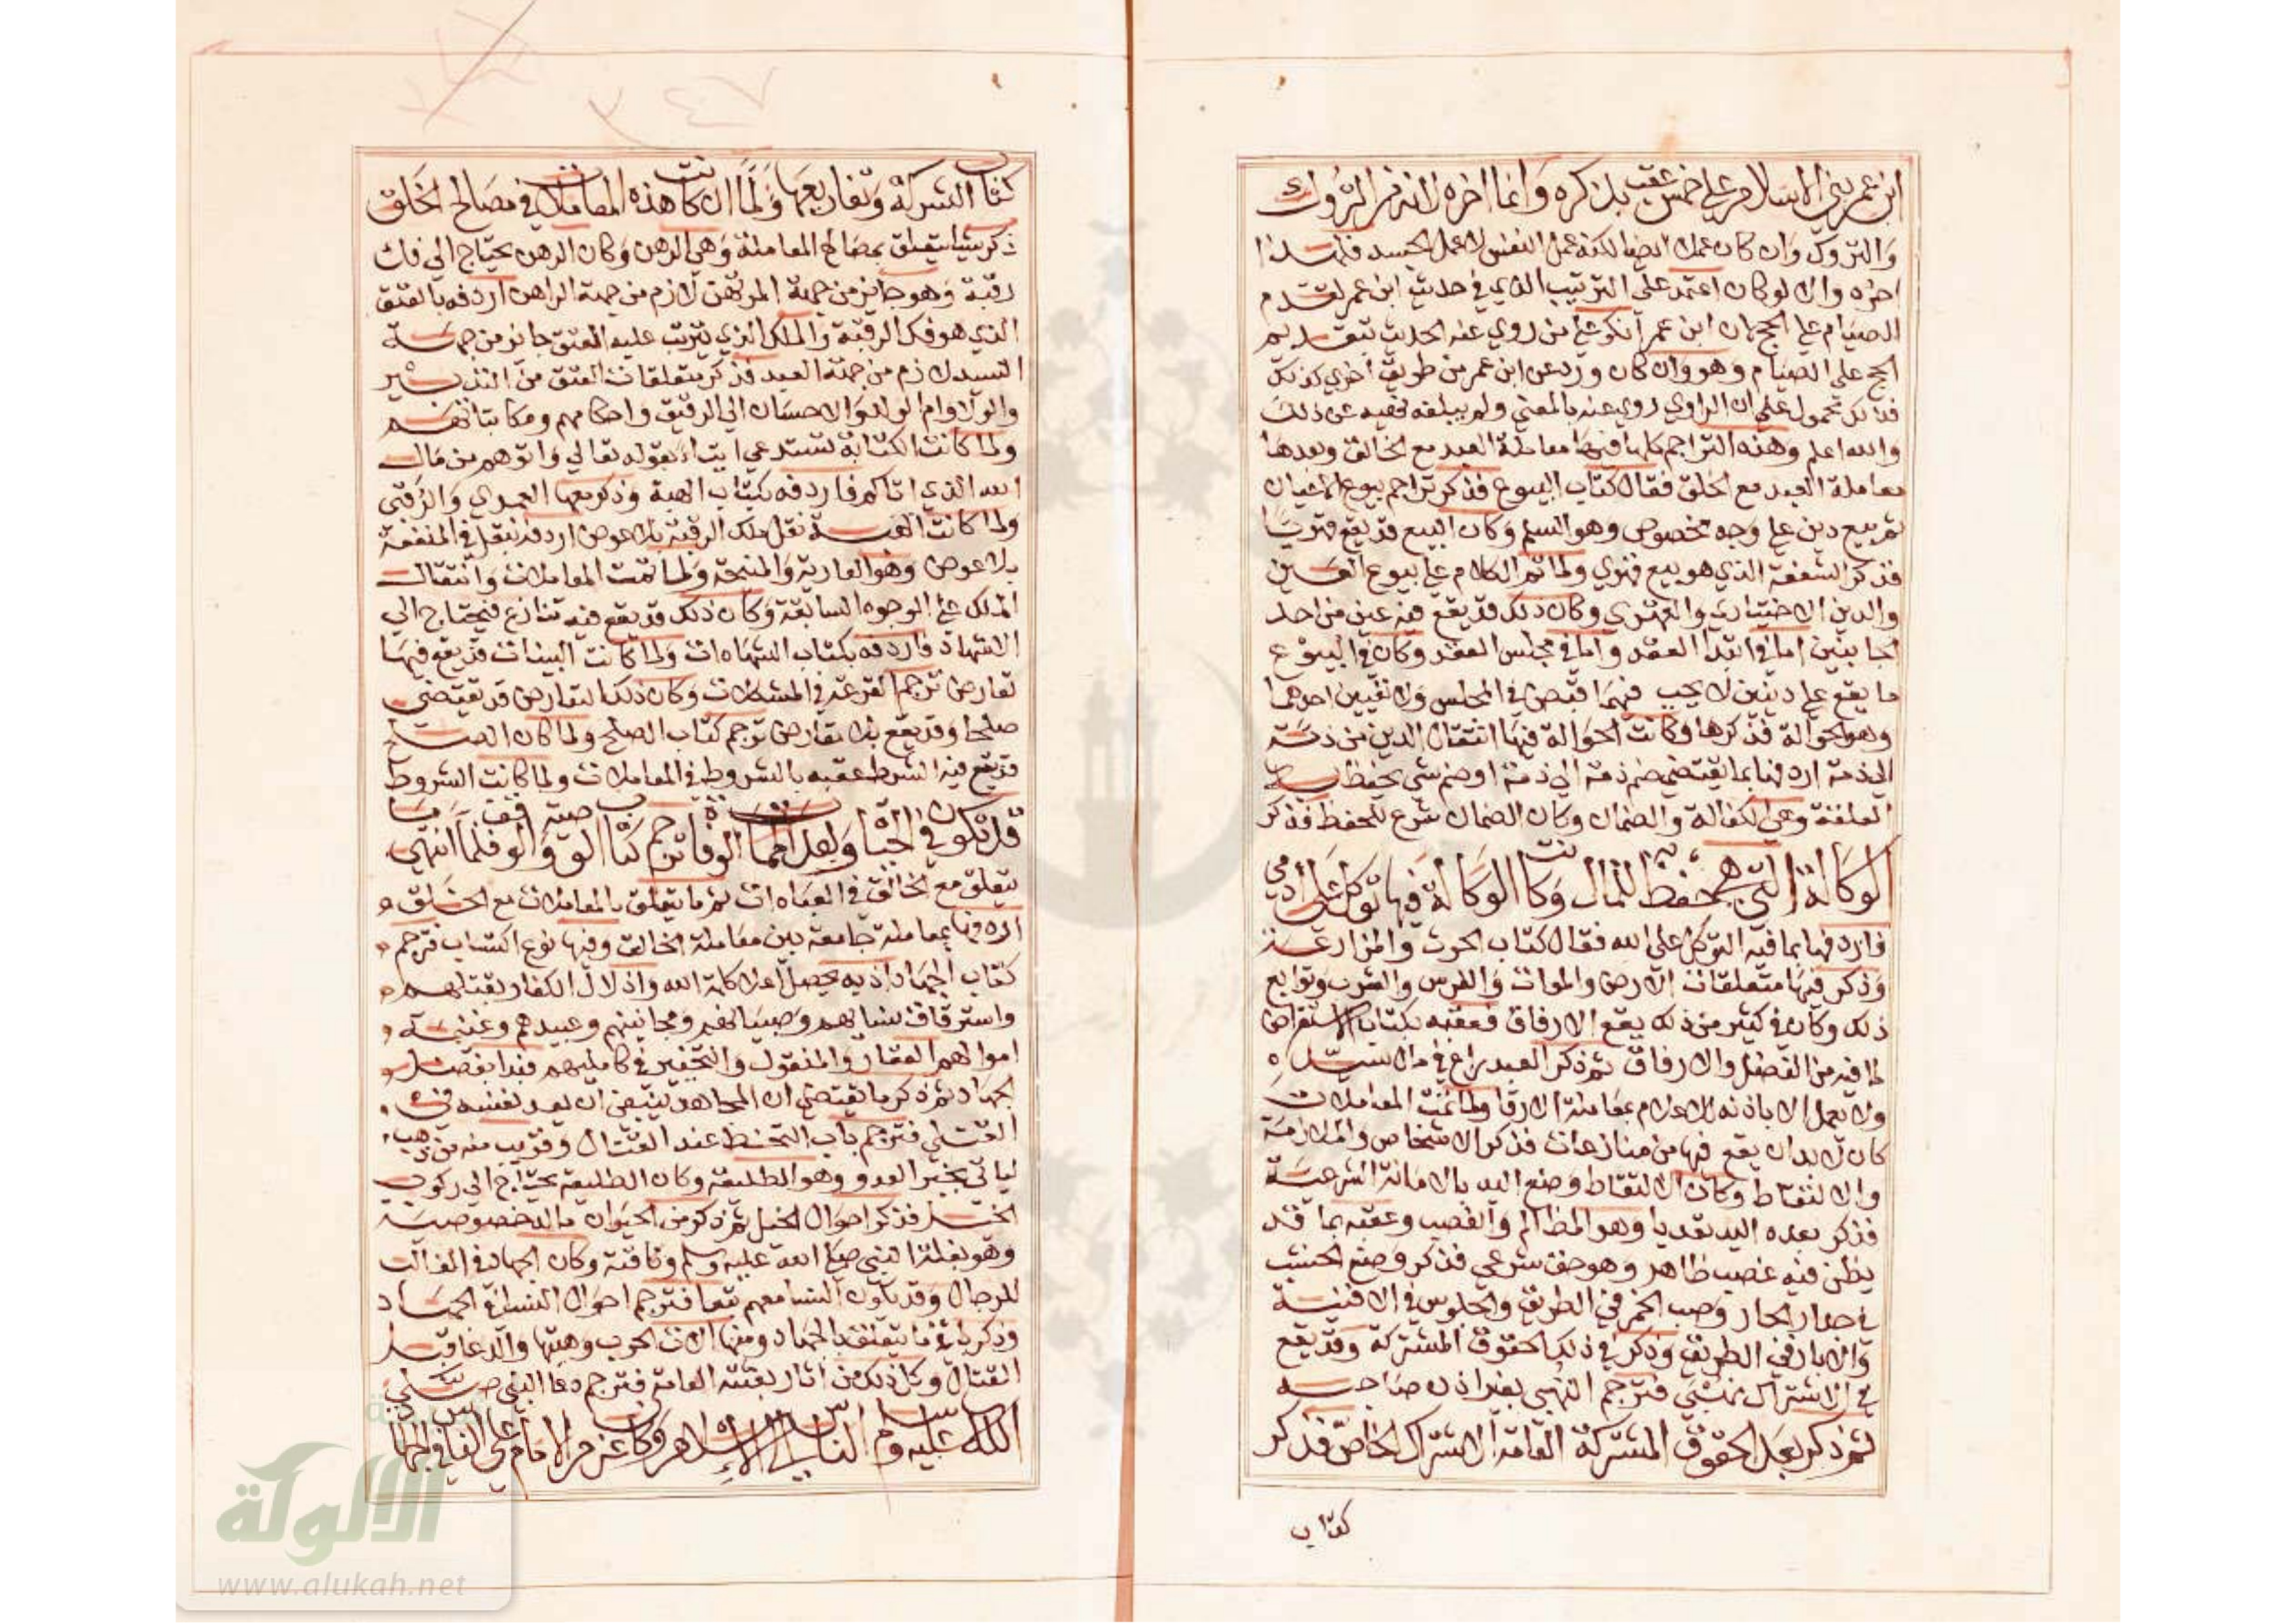 ابن عمر بني الاسلام على خمس عقب بذكره وانما اخره لانه من التروك
والتروك وان كان عملا ايضا لكنه عمل النفس لا عمل الجسد فلهذا
اخره والا لو كان اعتمد على الترتيب الذي في حديث ابن عمر لقدم
الصيام على الحج لان ابن عمر انكر على من روي عنه الحديث بتقديم
الحج على الصيام وهو وان كان ورد عن ابن عمر من طريق اخري كذلك
فذلك محمول على ان الراوي روي عنه بالمعني ولم يبلغه نهيه عن ذلك
والله اعلم وهذه التراجم كلها فيها معاملة العبد مع الخالق وبعدها
معاملة العبد مع الخلق فقال كتاب البيوع فذكر تراجم بيوع الاعيان
ثم بيع دين على وجه مخصوص وهو السلم وكان البيع قد يقع قهريا
فذكر الشفعة الذي هو بيع قهري ولما تم الكلام على بيوع العين
والدين الاختياري والقهري وكان ذلك قد يقع فيه غبن من احد
الجانبين اما في ابتدا العقد واما في مجلس العقد وكان في البيوع
ما يقع على دينين لا يجب فيهما قبض في المجلس ولا تعيين احدهما
وهو الحوالة فذكرها وكانت الحوالة فيها انتقال الدين من ذمة
الي ذمة اردفها بما يقتضي ضم ذمة الي ذمة او ضم شي يحفظ به
العلقة وهي الكفالة والضمان وكان الضمان شرع للحفظ فذكر
الوكالة التي هي حفظ للمال وكانت الوكالة فيها توكل على ادمي
فاردفها بما فيه التوكل على الله فقال كتاب الحرث والمزارعة
وذكر فيها متعلقات الارض والموات والغرس والشرب وتوابع
ذلك وكان في كثير من ذلك يقع الارفاق فعقبه بكتاب الاستقراض
لما فيه من الفضل والارفاق ثم ذكر العبد راع في مال سيده
ولا يعمل الا باذنه للاعلام بمعاملة الارقا ولما تمت المعاملات
كان لا بد ان يقع فيها من منازعات فذكر الاشخاص والملازمة
والالتقاط وكان الالتقاط وضع اليد بالامانة الشرعية
فذكر بعده اليد تعديا وهو المظالم والغصب وعقبه بما قد
يظن فيه غصب ظاهر وهو حق شرعي فذكر وضع الخشب
في جدار الجار وصب الخمر في الطريق والجلوس في الافنية
والابار في الطريق وذكر في ذلك الحقوق المشتركة وقد يقع
في الاشتراك نهبي فترجم النهبي بغير اذن صاحبه
ثم ذكر بعد الحقوق المشتركة العامة الاشتراك الخاص فذكر
كتاب
كتاب الشركة وتفاريعها ولما ان كانت هذه المعاملات في مصالح الخلق
ذكر شيا يتعلق بمصالح المعاملة وهي الرهن وكان الرهن يحتاج الي فك
رقبة وهو جايز من جهة المرتهن لازم من جهة الراهن اردفه بالعتق
الذي هو فك الرقبة والملك الذي يترتب عليه العتق جايز من جهة
السيد لازم من جهة العبد فذكر متعلقات العتق من التدبير
والولا وام الولد والاحسان الي الرقيق واحكامهم ومكاتباتهم
ولما كانت الكتابة تستدعي ايتاء لقوله تعالي واتوهم من مال
الله الذي اتاكم فاردفه بكتاب الهبة وذكر معها العمري والرقبي
ولما كانت الهبة نقل ملك الرقبة بلا عوض اردفه نقل في المنفعة
بلا عوض وهو العارية والمنيحة ولما تمت المعاملات وانتقالات
الملك على الوجوه السابقة وكان ذلك قد يقع فيه تنازع فيحتاج الي
الاشهاد فاردفه بكتاب الشهادات ولما كانت البينات قد يقع فيها
تعارض ترجم القرعة في المشكلات وكان ذلك التعارض قد يقتضي
صلحا وقد يقع بلا تعارض ترجم كتاب الصلح ولما كان الصلح
قد يقع فيه الشرط عقبه بالشروط في المعاملات ولما كانت الشروط
قد تكون في الحياة وبعد الممات الوفاة ترجم كتاب الوصية والوقف فلما انتهي ما
يتعلق مع الخالق في العبادات ثم ما يتعلق بالمعاملات مع الخلق
اردفها بمعاملة جامعة بين معاملة الخالق وفيها نوع اكتساب فترجم
كتاب الجهاد اذ به يحصل اعلا كلمة الله واذلال الكفار بقتلهم
واسترقاق نسائهم وصبيانهم ومجانينهم وعبيدهم وغنيمة
اموالهم العقار والمنقول والتخيير في كامليهم فبدا بفضل
الجهاد ثم ذكر ما يقتضي ان المجاهد ينبغي ان يعد نفسه في
القتلي فترجم باب التحنط عند القتال وقريب منه من ذهب
لياتي بخبر العدو وهو الطليعة وكان الطليعة يحتاج الي ركوب
الخيل فذكر احوال الخيل ثم ذكر من الحيوان ما له خصوصية
وهو بغلة النبي صلى الله عليه وسلم وناقته وكان الجهاد في الغالب
للرجال وقد تكون النسا معهم تبعا فترجم احوال النسا في الجهاد
وذكر باقي ما يتعلق بالجهاد ومنها الات الحرب وهيتها والدعا قبل
القتال وكل ذلك من اثار بعثته العامة فترجم دعا النبي صلى
الله عليه وسلم الناس الي الاسلام وكان عزم الامام على الناس في الجهاد
الألوكة
www.alukah.net